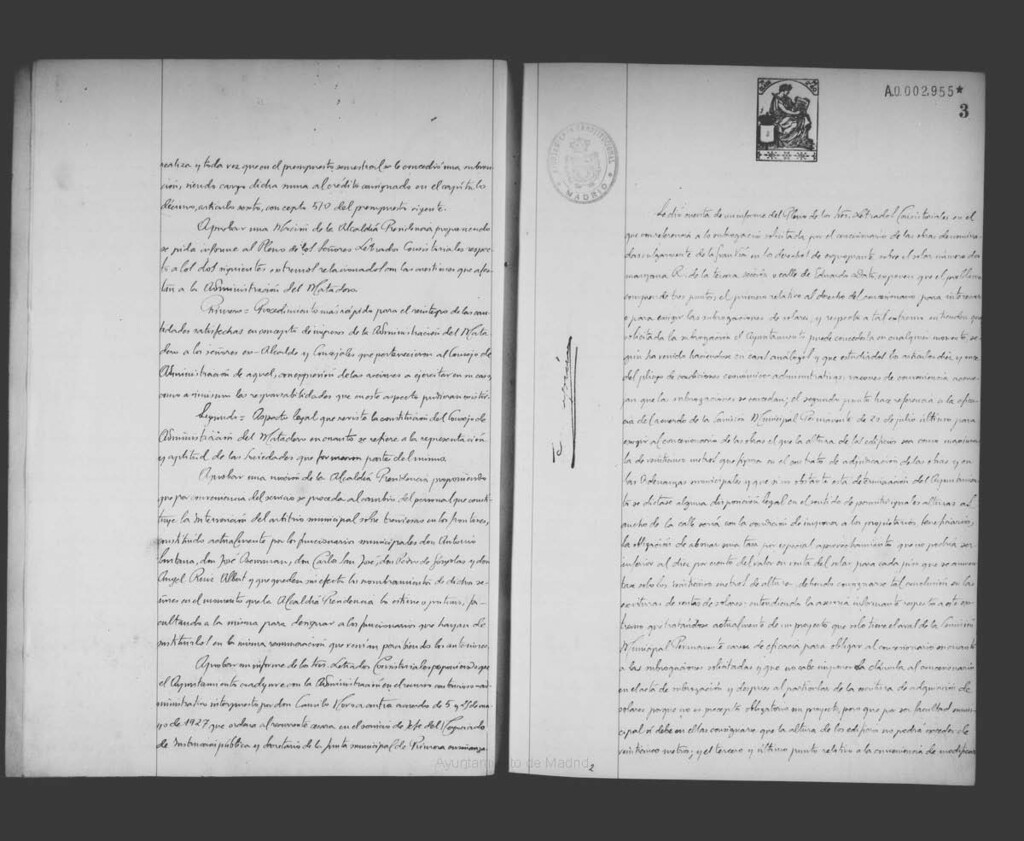 realiza y toda vez que en el presupuesto semestral se le concedió una subven-
ción, siendo cargo dicha suma al crédito consignado en el capítulo
décimo, artículo sexto, concepto 510 del presupuesto vigente.
Aprobar una Moción de la Alcaldía Presidencia proponiendo
se pida informe al Pleno de los Señores Letrados Consistoriales respec-
to a los dos siguientes extremos relacionados con las cuestiones que afec-
tan a la Administración del Matadero
Primero = Procedimiento más rápido para el reintegro de las can-
tidades satisfechas en concepto de ingresos de la Administración del Mata-
dero a los señores ex-Alcalde y Concejales que pertenecieron al Consejo de
Administración de aquel, con expresión de las acciones a ejercitar en su caso
como asimismo las responsabilidades que en este aspecto pudieran existir.
Segundo = Aspecto legal que reviste la constitución del Consejo de
Administración del Matadero en cuanto se refiere a la representación
y aptitud de las Sociedades que formaron parte del mismo.
Aprobar una moción de la Alcaldía Presidencia proponiendo
que por conveniencia del servicio se proceda al cambio del personal que consti-
tuye la Intervención del arbitrio municipal sobre
constituido actualmente por los funcionarios municipales don Antonio
Santana, don José don Carlos San José, don Pedro de y don
Angel Ruiz y que queden sin efecto los nombramientos de dichos se-
ñores en el momento que la Alcaldía Presidencia lo estime oportuno, fa-
cultando a la misma para designar a los funcionarios que hayan de
sustituirles en la misma remuneración que venían percibiendo los anteriores.
Aprobar un informe de los Sres. Letrados Consistoriales proponiendo que
el Ayuntamiento coadyuve con la Administración en el recurso contencioso-ad-
ministrativo interpuesto por don Camilo contra acuerdo de 5 y
de 1927 que ordenó al recurrente cesara en el servicio de Jefe del Negociado
de Instrucción pública y Secretario de la Junta municipal de Primera enseñanza.
A.0.002.955*
3
MADRID
Se dió cuenta de un informe del Pleno de los Sres. Letrados Consistoriales en el
que
manzana R. de la tercera sección y calle de Eduardo Dato, exponen que el problema
comprende tres puntos; el primero relativo al derecho del concesionario para interesar
o para exigir las subrogaciones de solares, y respecto a tal extremo entienden que
solicitada la subrogación el Ayuntamiento puede concederla en cualquier momento, se-
gún ha venido haciéndose en casos análogos y que estudiados los artículos diez y once
del pliego de condiciones económico administrativas, razones de conveniencia aconse-
jan que las subrogaciones se concedan; el segundo punto hace referencia a la eficacia
del acuerdo de la Comisión Municipal Permanente de 20 de julio último para
exigir al concesionario de las obras el que la altura de los edificios sea como máximo
la de veinticinco metros que figura en el contrato de adjudicación de las obras y en
las Ordenanzas municipales y que si no obstante esta determinación del Ayuntamien-
to se dictase alguna disposición legal en el sentido de permitir mayores alturas al
ancho de la calle será con la condición de imponer a los propietarios beneficiarios,
la obligación de abonar una tasa por especial aprovechamiento que no podrá ser
inferior al diez por ciento del valor en venta del solar para cada piso que se aumen-
tase sobre los veinticinco metros de altura, debiendo consignarse tal conclusión en las
escrituras de ventas de solares; entendiendo la asesoría informante respecto a este ex-
tremo que tratándose actualmente de un proyecto que sólo tiene el aval de la Comisión
Municipal Permanente carece de eficacia para obligar al concesionario en cuanto
a las subrogaciones solicitadas y que no cabe imponer la cláusula al concesionario
en el acta de subrogación y después al particular de la escritura de adquisición de
solares porque no es precepto obligatorio un proyecto, pero que por ser facultad muni-
cipal sí debe en ellas consignarse que la altura de los edificios no podrá exceder de
veinticinco metros; y el tercero y último punto relativo a la conveniencia de modificar
Ayuntamiento de Madrid
2